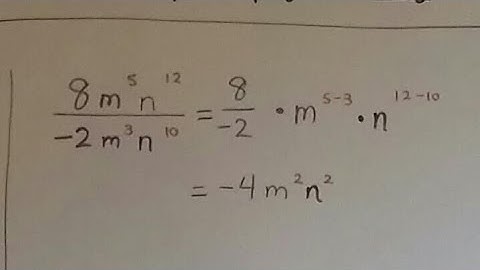 8m⁵n¹² / -2m³n¹⁰ = 8/-2 · m⁵⁻³ · n¹²⁻¹⁰
= -4m²n²